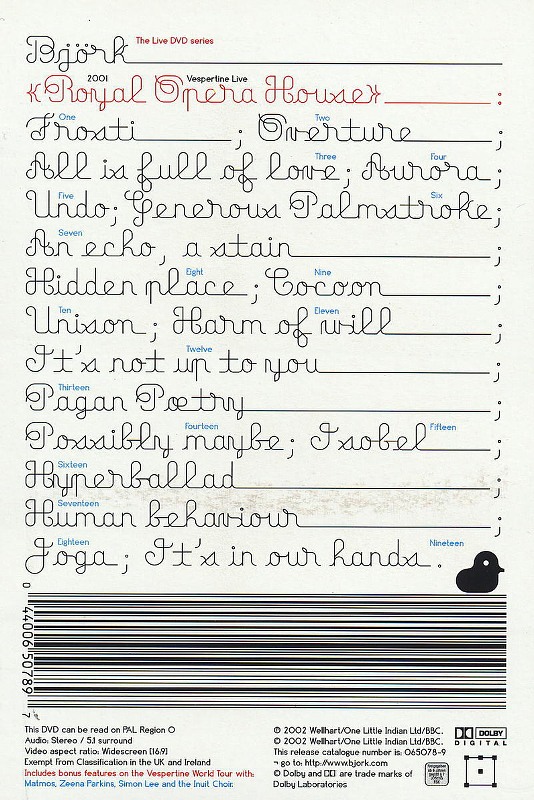 Björk The Live DVD series
2001 Vespertine Live
«Royal Opera House» :
One Two
Frosti ; Overture ;
Three Four
All is full of love; Aurora ;
Five Six
Undo; Generous Palmstroke;
Seven
An echo, a stain ;
Eight Nine
Hidden place ; Cocoon ;
Ten Eleven
Unison ; Harm of will ;
Twelve
It's not up to you ;
Thirteen
Pagan Poetry ;
Fourteen Fifteen
Possibly maybe; Isobel ;
Sixteen
Hyperballad ;
Seventeen
Human behaviour ;
Eighteen Nineteen
Joga ; It's in our hands .
0 44006 50789 7
This DVD can be read on PAL Region 0
Audio: Stereo / 5.1 surround
Video aspect ratio: Widescreen [16:9]
Exempt from Classification in the UK and Ireland
Includes bonus features on the Vespertine World Tour with:
Matmos, Zeena Parkins, Simon Lee and the Inuit Choir.
© 2002 Wellhart/One Little Indian Ltd/BBC.
© 2002 Wellhart/One Little Indian Ltd/BBC.
This release catalogue number is: 065078-9
¬ go to: http://www.bjork.com
© Dolby and are trade marks of
Dolby Laboratories
DOLBY
DIGITAL